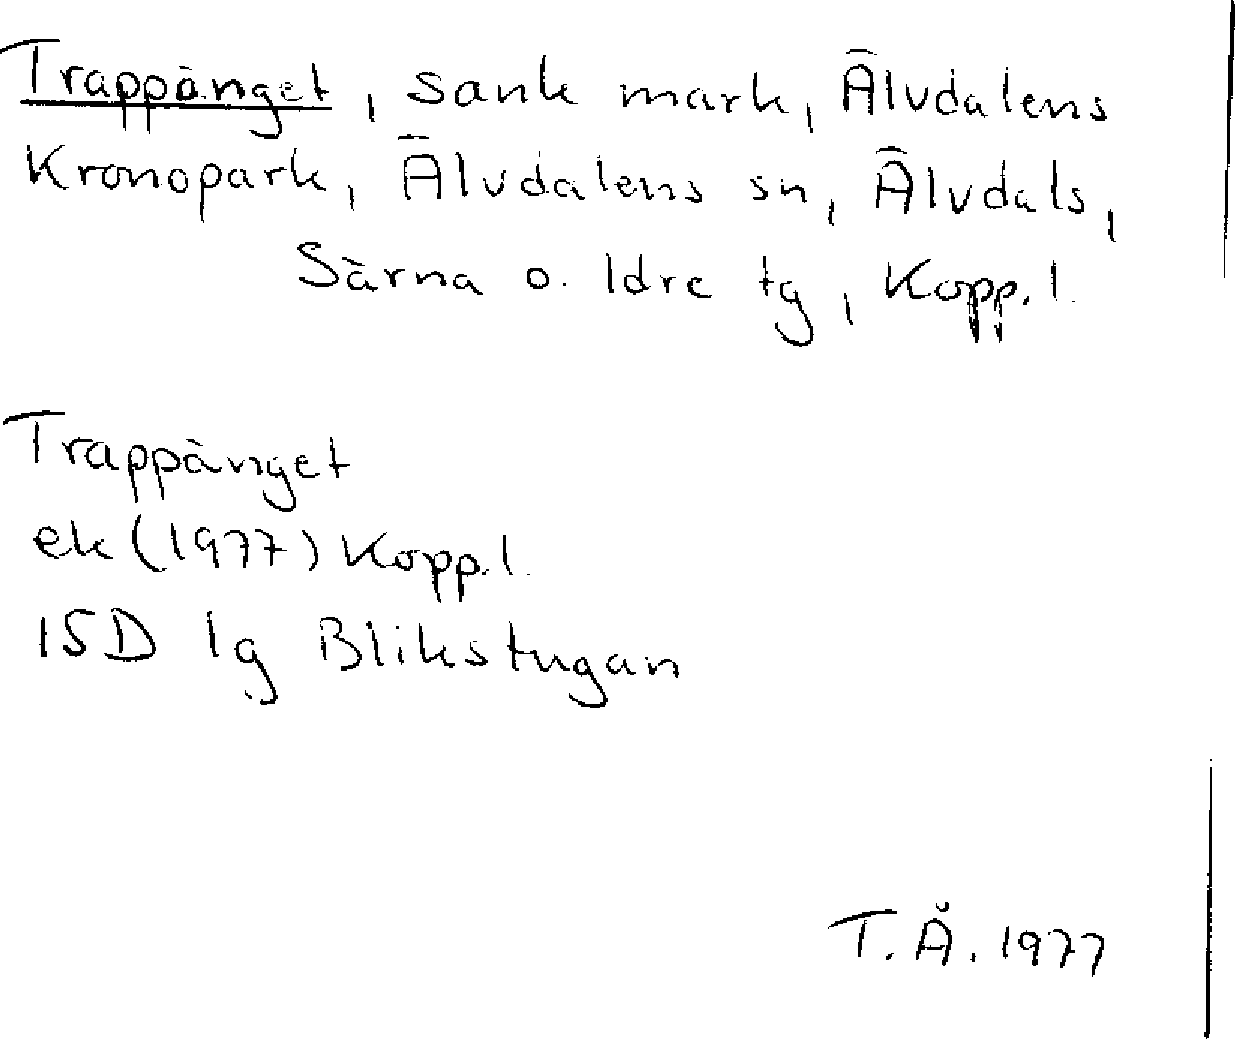 Trappänget, sank mark, Älvdalens
Kronopark, Älvdalens sn, Älvdals,
Särna o. Idre tg, Kopp. l.
Trappänget
ek (1977) Kopp. l.
15D 1g Blikstugan
T. Å. 1977